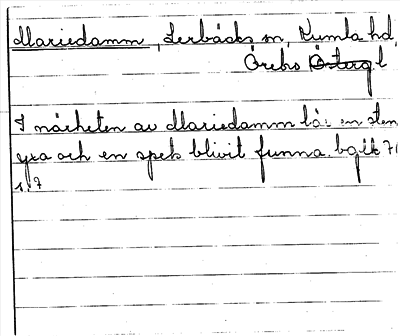 Mariedamm, Lerbäcks sn, Kumla hd,
Örebro Östergl
I närheten av Mariedamm lär en sten
yxa och en spets blivit funna.
s. 7